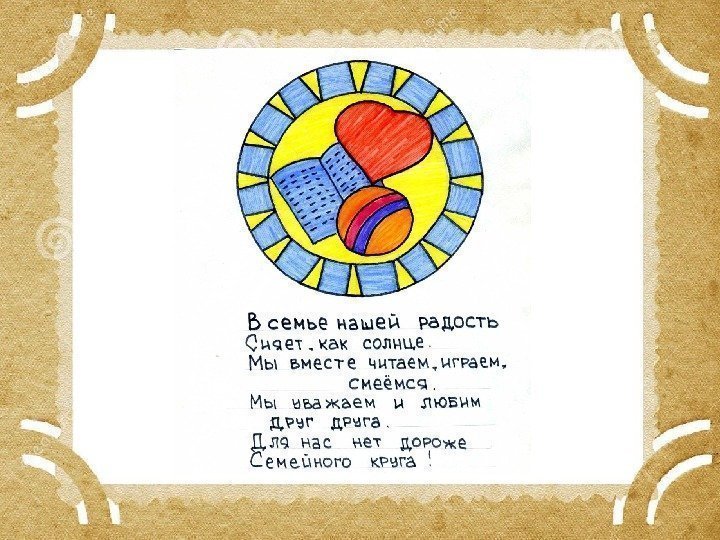 В семье нашей радость
Сияет, как солнце.
Мы вместе читаем, играем,
смеёмся.
Мы уважаем и любим
друг друга.
Для нас нет дороже
Семейного круга!